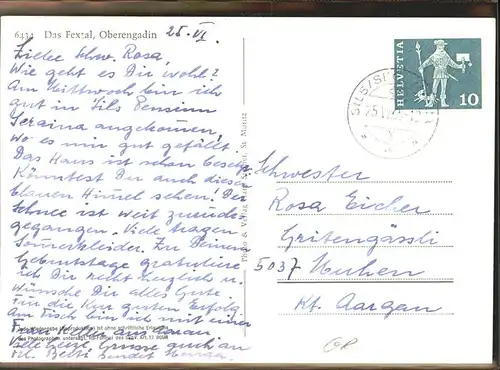 6434 Das Fextal, Oberengadin
25. VI.
Liebe Schw. Rosa,
Wie geht es Dir wohl?
Am Mittwoch bin ich
gut in Sils Pension
Seraina angekommen,
wo es mir gut gefällt.
Das Haus ist schon besetzt.
Könntest Du auch diesen
blauen Himel sehen! Der
Schnee ist weit zurück
gegangen. Viele tragen
Somerkleider. Zu Deinem
Geburtstage gratuliere
ich Dir recht herzlich u.
Wünsche Dir alles Gute.
Für die Kur guten Erfolg
Am Tisch bin ich mit einer
Frau Keller aus
Grüsse auch an
sendet
HELVETIA
10
SILS/S
Schwester
Rosa Eicher
Gritengässli
5037 Muhen
Kt. Aargau
St. Moritz